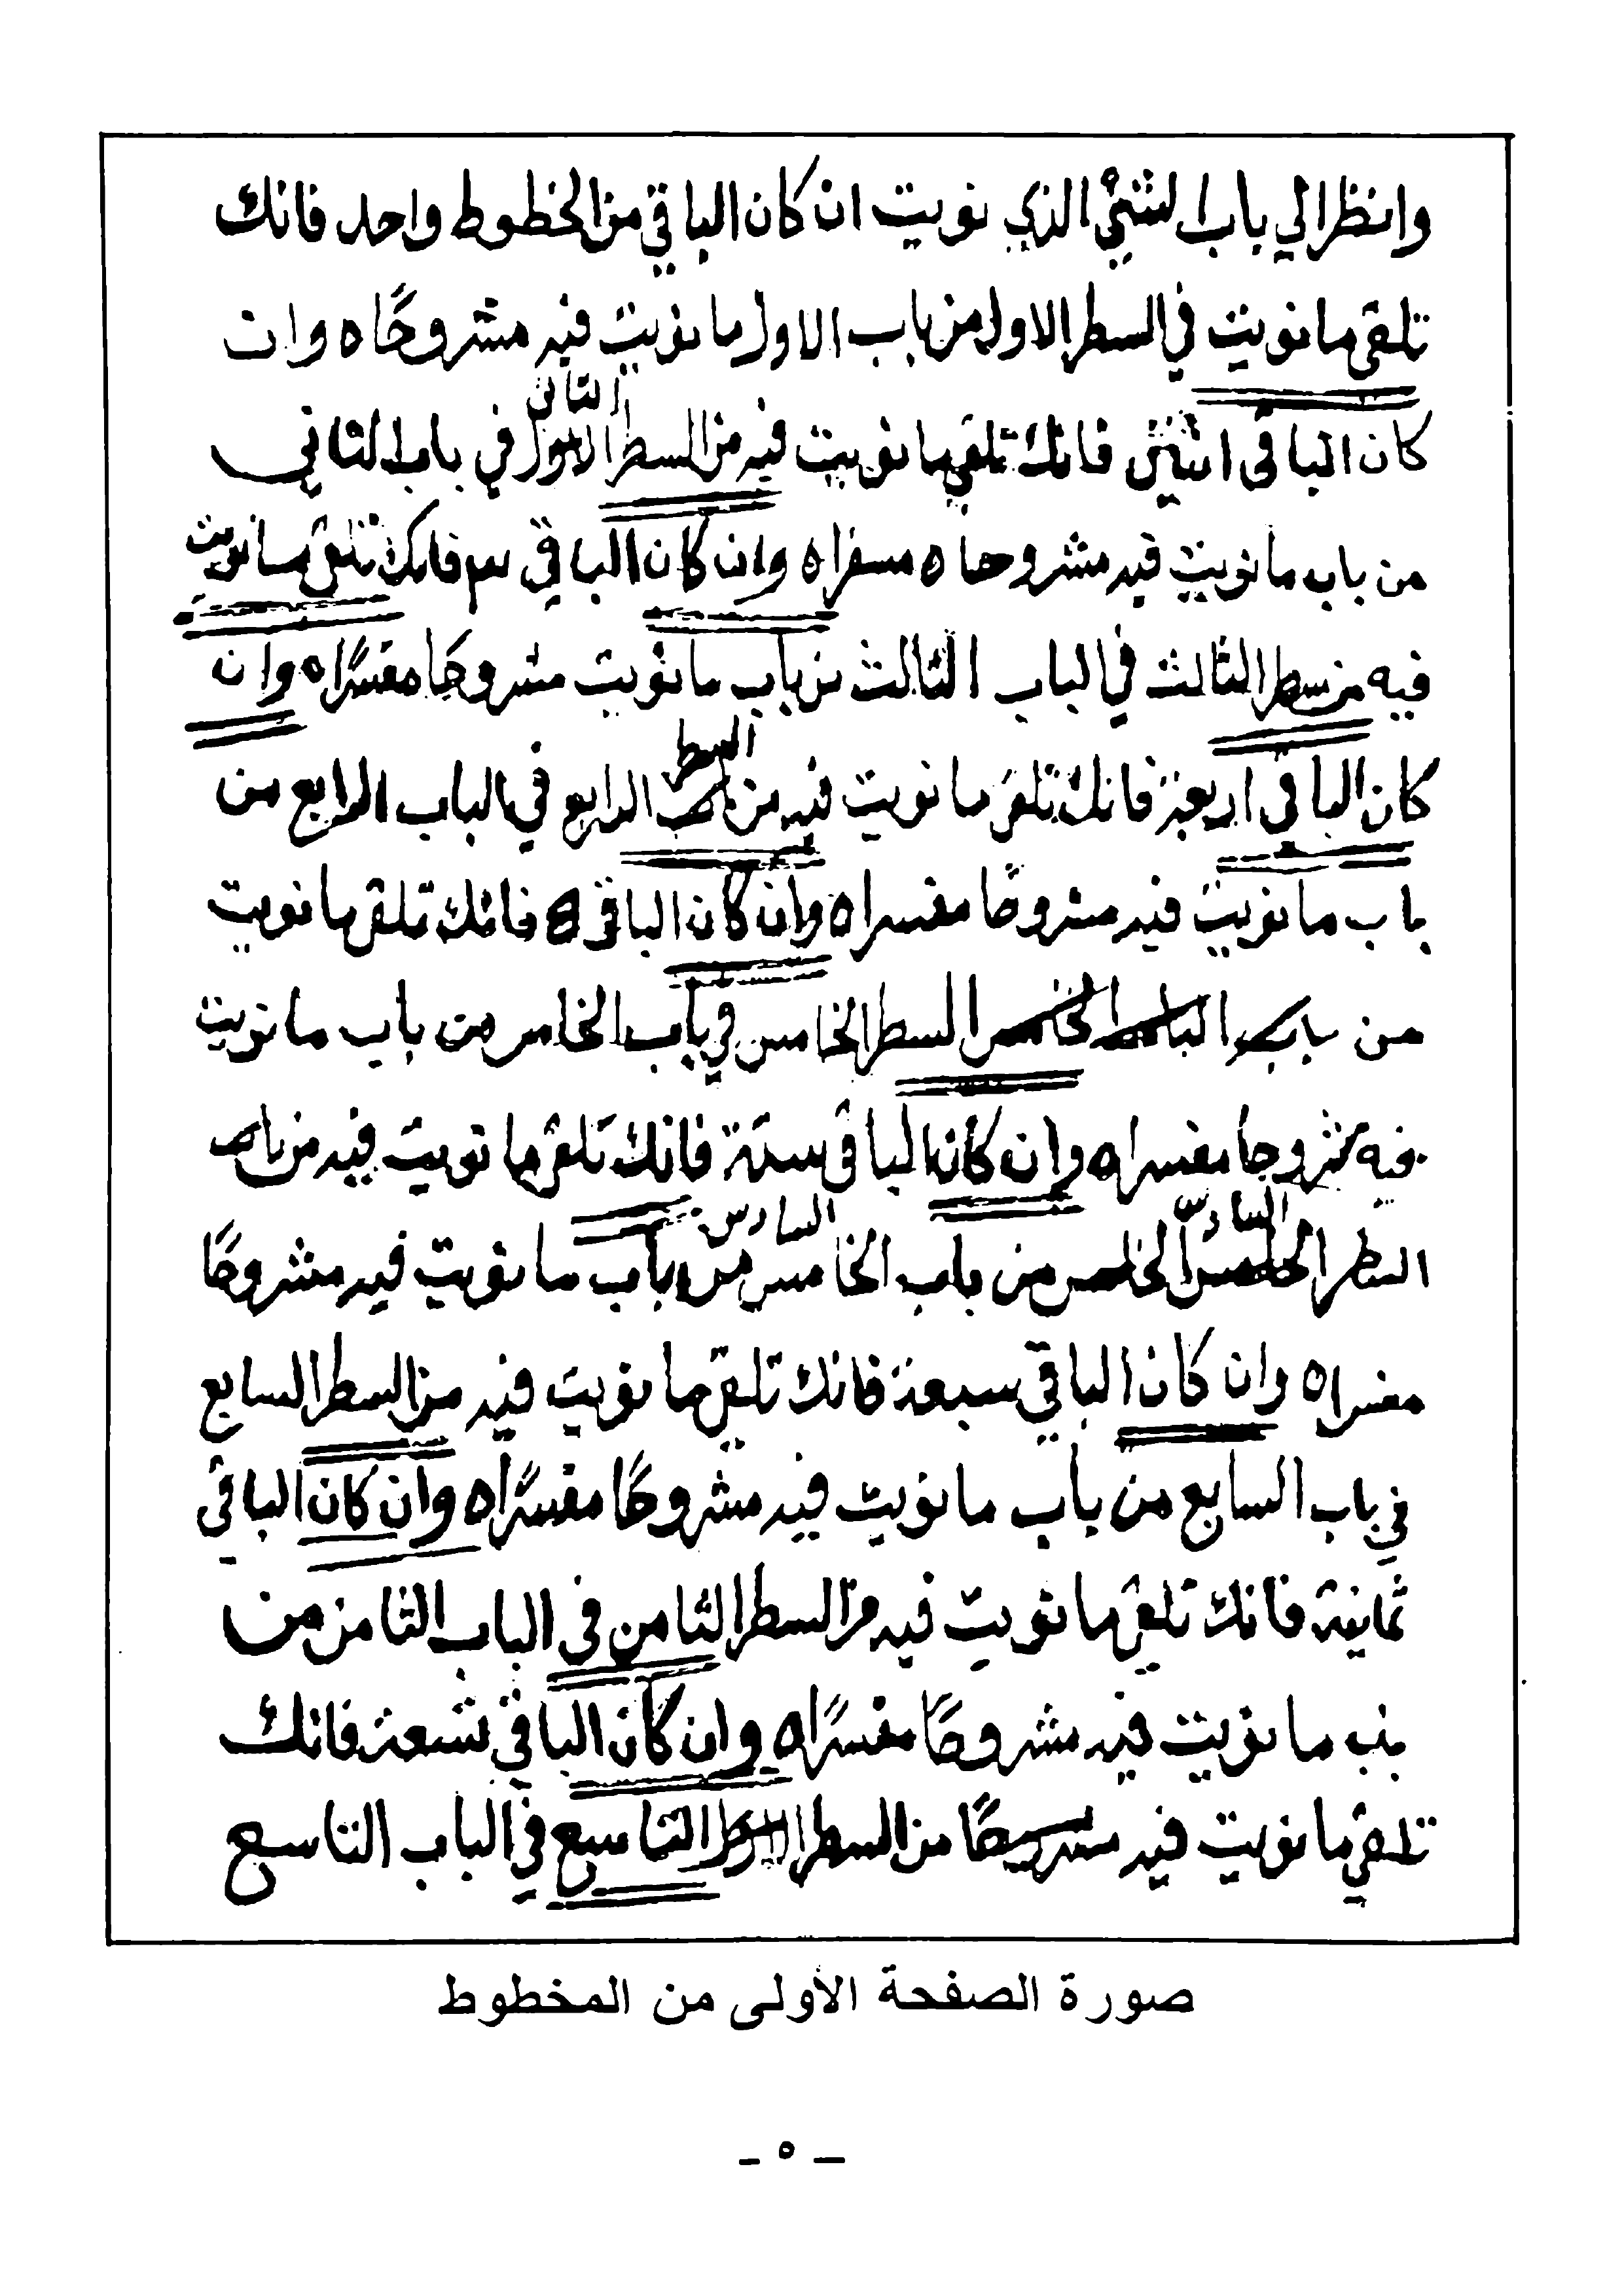 وانظر الي باب الشئي الذي نويت ان كان الباقي من الخطوط واحد فانك
تلقي ما نويت في السطر الاول من باب الاول ما نويت فيه مشروحًا ه وان
الثاني
كان الباقي اثنين فانك تلقي ما نويت فيه من السطر الاول في باب الثاني
من باب ما نويت فيه مشروحا ه مسفرا ه وان كان الباقي فانك تلقي ما نويت
فيه من سطر الثالث في الباب الثالث من باب ما نويت مشروحًا مفسرًا ه وان
السطر
كان الباقي اربعة فانك تلقي ما نويت فيه من الرابع في الباب الرابع من
باب ما نويت فيه مشروحًا مفسرا ه وان كان الباقي فانك تلقي ما نويت
من باب الباب الخامس السطر الخامس في باب الخامس من باب ما نويت
فيه مشروحا مفسرا ه وان كان الباقي ستة فانك تلقي ما نويت فيه من باب
السادس السادس
السطر الخامس الخامس من باب الخامس من باب ما نويت فيه مشروحًا
مفسرا ه وان كان الباقي سبعة فانك تلقي ما نويت فيه من السطر السابع
في باب السابع من باب ما نويت فيه مشروحًا مفسرًا ه وان كان الباقي
ثمانية فانك تلقي ما نويت فيه من السطر الثامن في الباب الثامن من
ما نويت فيه مشروحًا مفسرًا ه وان كان الباقي تسعة فانك
تلقي ما نويت فيه مشروحًا من السطر التاسع في الباب التاسع
صورة الصفحة الأولى من المخطوط
- ٥ -